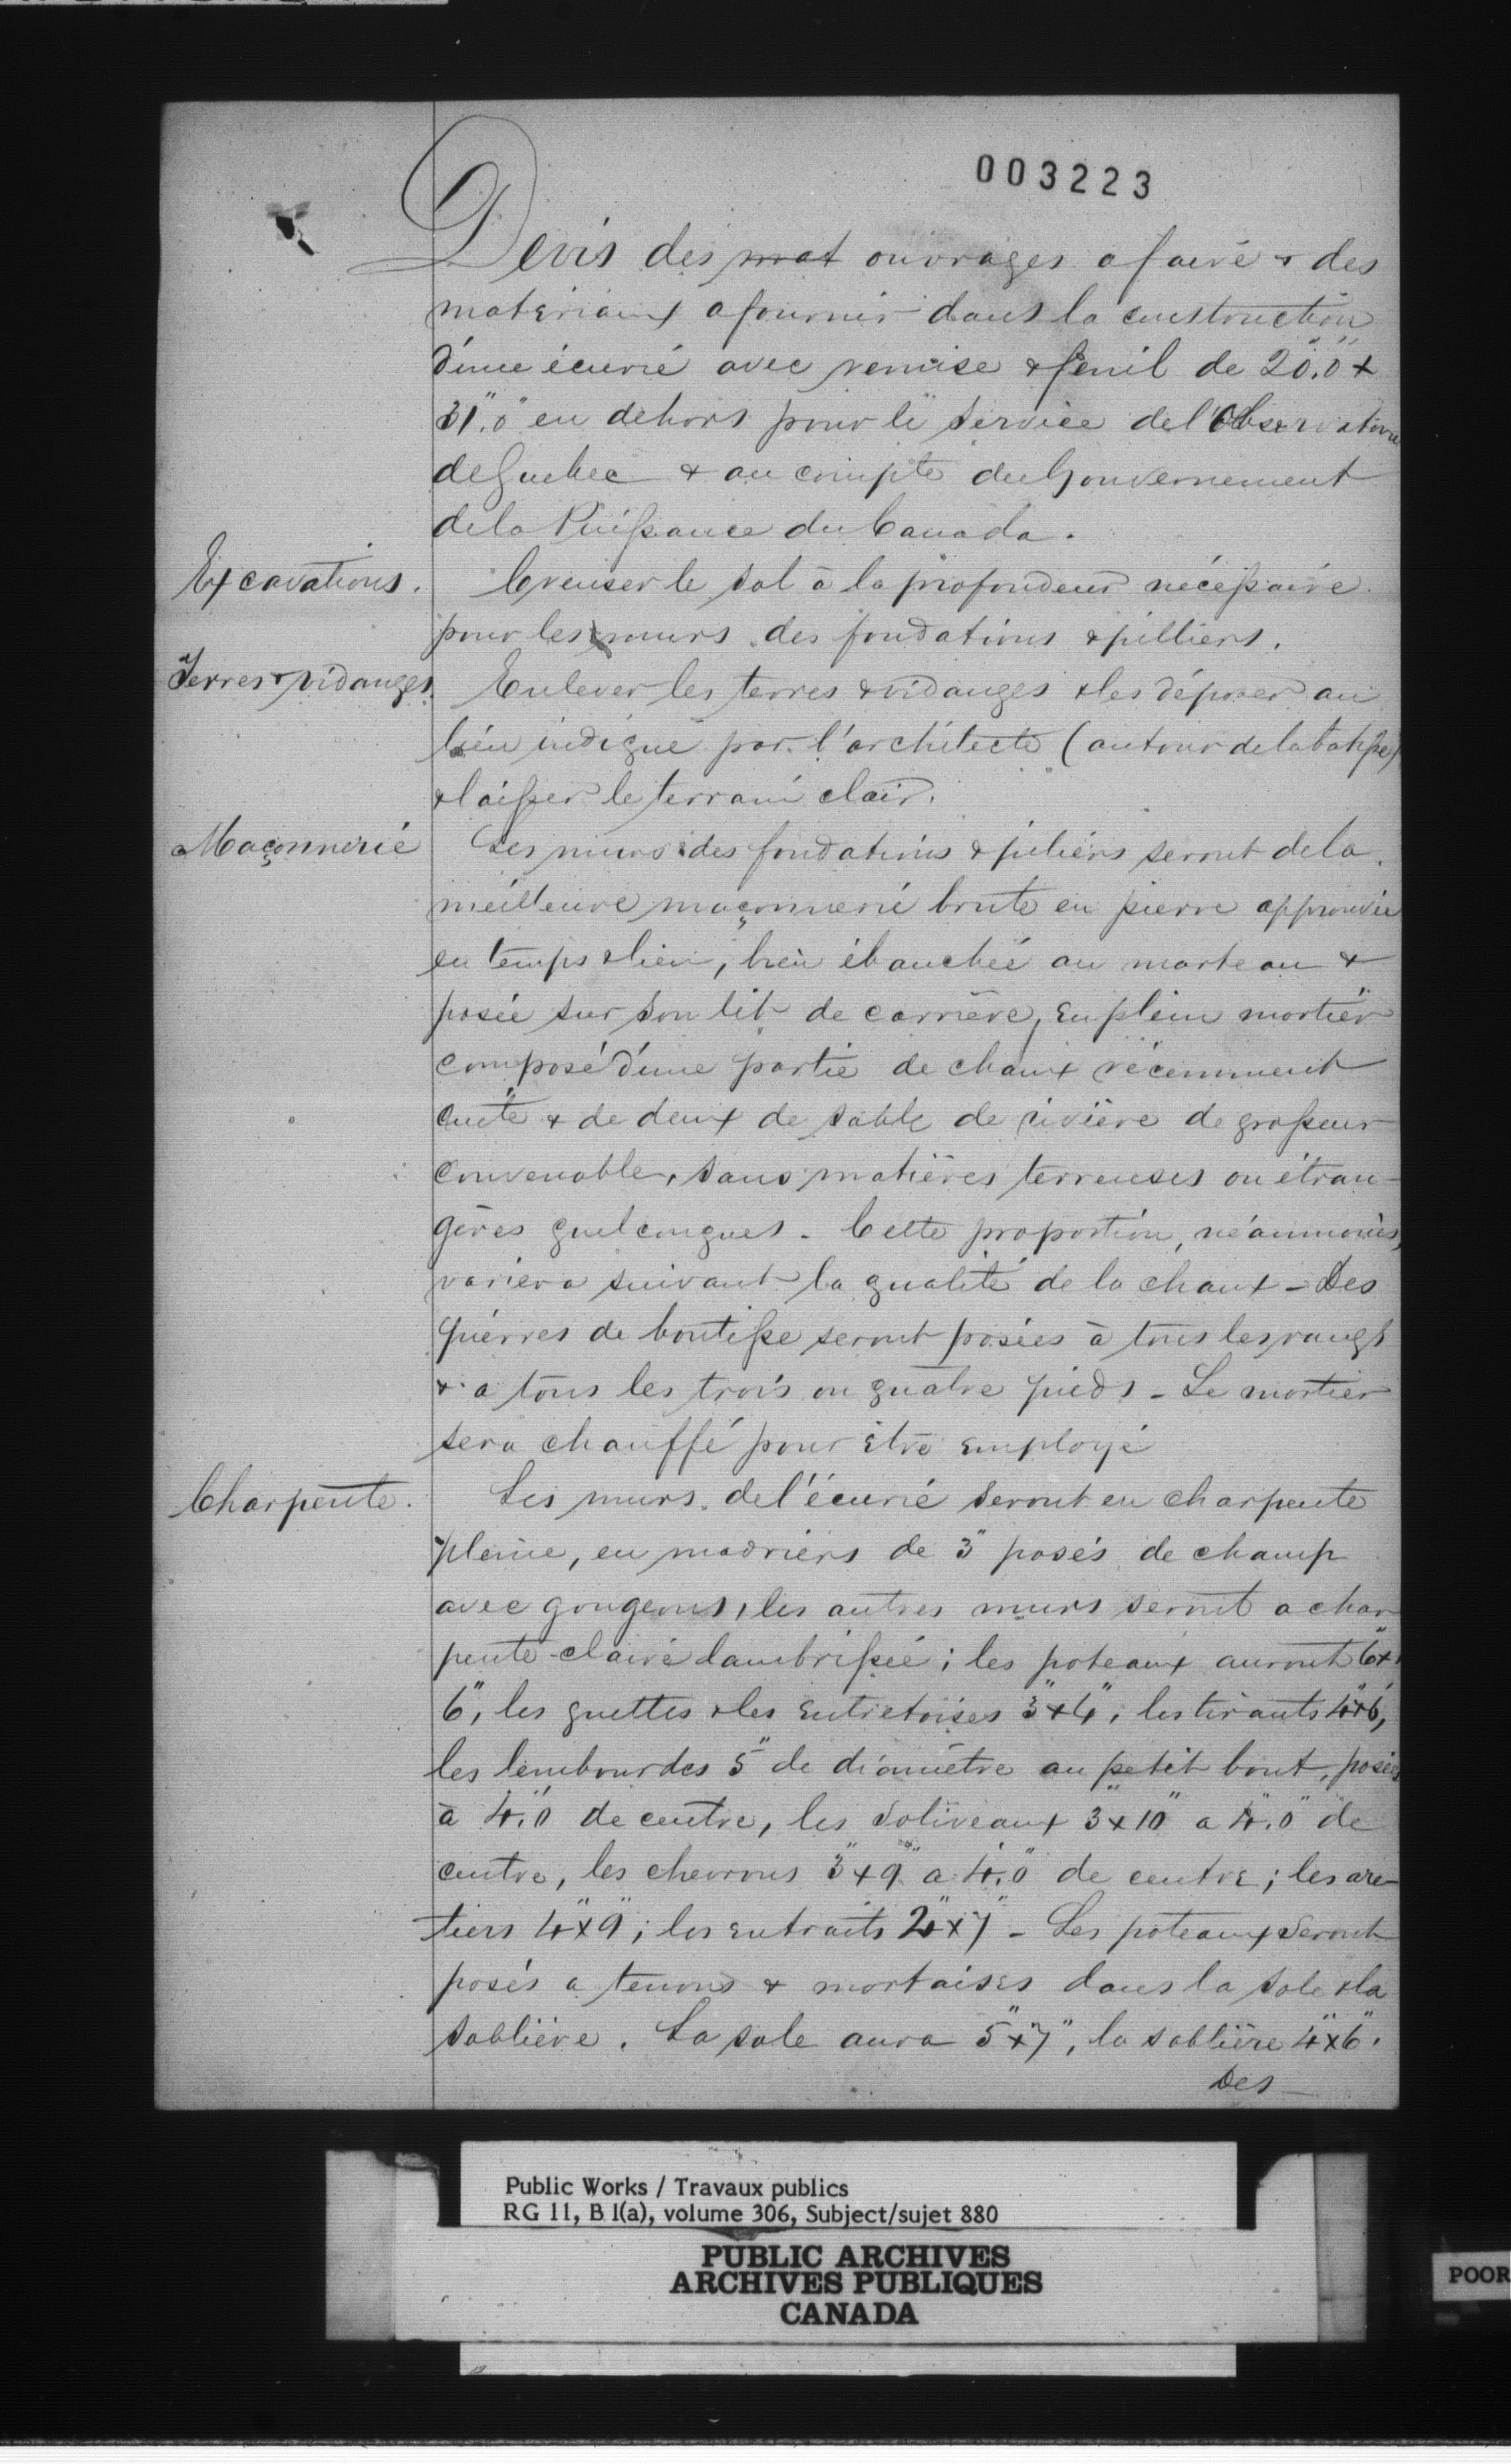 003223
Devis des mat ouvrages a faire & des
materiaux a fournir dans la construction
d'une écurie avec remise & fenil de 20'.0" x
31'.0" en dehors pour le service de l'Observatoire
de Quebec & au compte du Gouvernement
de la Puissance du Canada.
Excavations. Creuser le sol à la profondeur nécessaire
pour les murs des fondations & pilliers.
Terres & vidanges. Enlever les terres & vidanges & les déposer au
lieu indiqué par l'architecte (autour de la batisse)
& laisser le terrain clair.
Maçonnerie Les murs des fondations & piliers seront de la
meilleure maçonnerie brute en pierre approuvée
en temps & lieu, bien ébauchée au marteau &
posée sur son lit de carrière, en plein mortier
composé d'une partie de chaux récemment
cuite & de deux de sable de rivière de grosseur
convenable, sans matières terreuses ou étran-
gères quelconques. Cette proportion, néanmoins,
variera suivant la qualité de la chaux - Des
pierres de boutisse seront posées à tous les rangs
& a tous les trois ou quatre pieds - Le mortier
sera chauffé pour être employé
Charpente. Les murs de l'écurie seront en charpente
pleine, en madriers de 3" posés de champ
avec gougeons, les autres murs seront a char
pente claire lambrissée; les poteaux auront 6" x
6", les guettes & les entretoises 3" x 4", les tirants 4" x 6",
les lembourdes 5" de diamètre au petit bout, posées
à 4'.0" de centre, les soliveaux 3" x 10" a 4'.0" de
centre, les chevrons 3" x 9" a 4'.0" de centre; les are-
tiers 4" x 9"; les entraits 2" x 7" - Les poteaux seront
posés a tenons & mortaises dans la sole & la
sablière. La sole aura 5" x 7", la sablière 4" x 6".
Des
Public Works / Travaux publics
RG 11, B 1(a), volume 306, Subject/sujet 880
PUBLIC ARCHIVES
ARCHIVES PUBLIQUES
CANADA
POOR